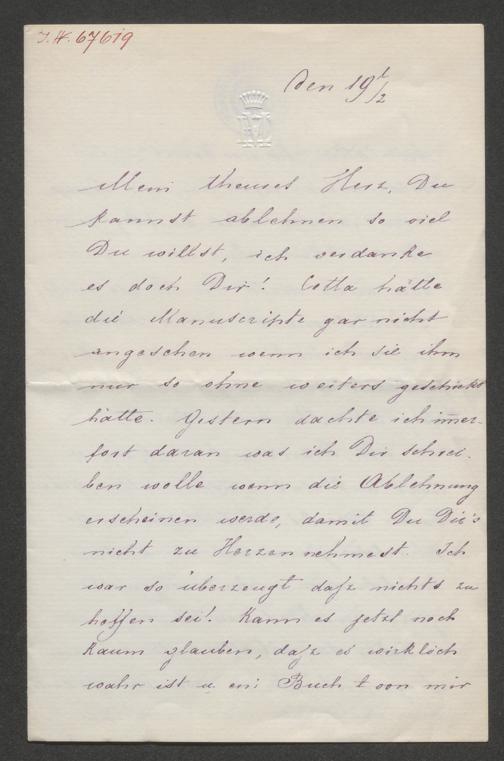 J.N. 67619
den 19/2
Mein theures Herz, Du
kannst ablehnen so viel
Du willst, ich verdanke
es doch Dir! Cotta hätte
die Manuscripte gar nicht
angesehen wenn ich sie ihm
nur so ohne weiters geschickt
hätte. Gestern dachte ich im̄er-
fort daran was ich Dir schrei-
ben wolle wenn die Ablehnung
erscheinen werde, damit Du Dir's
nicht zu Herzen nehmest. Ich
war so überzeugt daß nichts zu
hoffen sei! Kann es jetzt noch
kaum glauben, daß es wirklich
wahr ist u. ein Buch von mir